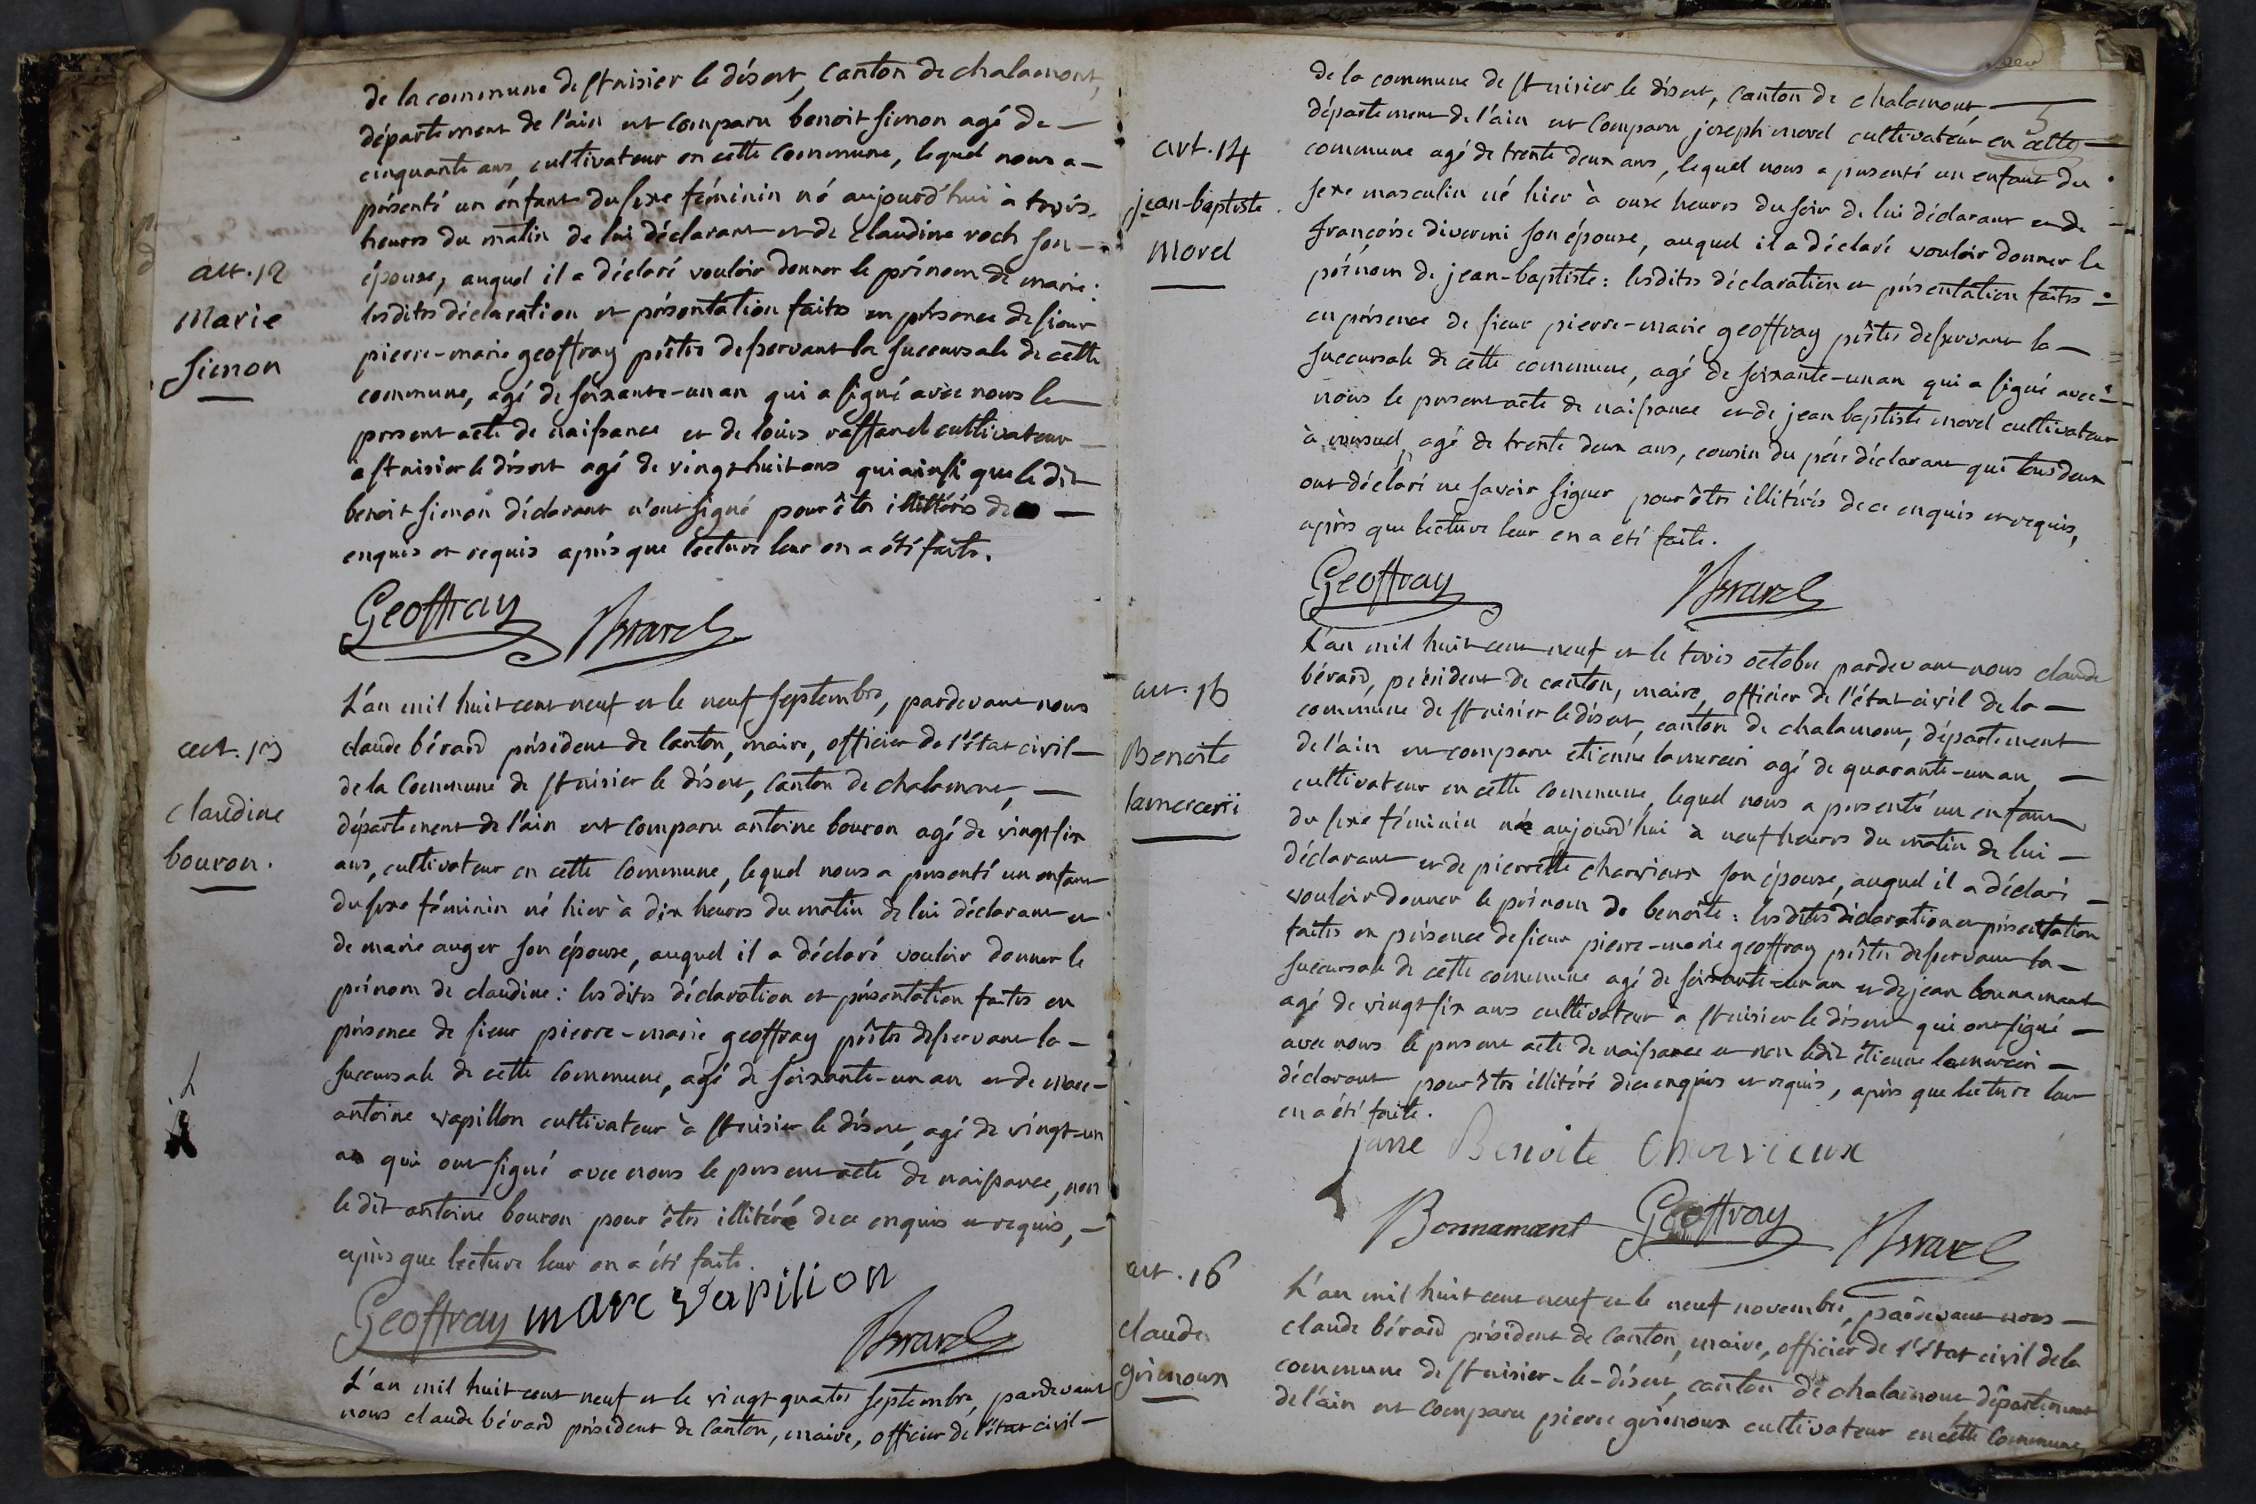 de la commune de st nisier le désert, canton de chalamont,
département de l'ain est comparu benoit simon agé de —
cinquante ans, cultivateur en cette commune, lequel nous a —
présenté un énfant du sexe féminin né aujourd'hui à trois
heures du matin de lui déclarant et de claudine roch son —
épouse, auquel il a déclaré vouloir donner le prénom de marie:
lesdites déclaration et présentation faites en présence de sieur
pierre-marie geoffray prêtre desservant la succursale de cette
commune, agé de soixante-un an qui a signé avec nous le
présent acte de naissance et de louis raffanel cultivateur
a st nisier le désert agé de vingt huit ans qui ainsi que ledit
benoit simon déclarant n'ont signé pour être illittéré de —
enquis et requis après que lecture leur en a été faite.
art. 12
Marie
Simon
Geoffray Berard
L'an mil huit cent neuf et le neuf septembre, pardevant nous
claude bérard président de canton, maire, officier de l'état civil —
de la commune de st nisier le désert, canton de chalamont, —
département de l'ain est comparu antoine bouron agé de vingt six
ans, cultivateur en cette commune, lequel nous a présenté un enfant
du sexe féminin né hier à dix heures du matin de lui déclarant et
de marie auger son épouse, auquel il a déclaré vouloir donner le
prénom de claudine: lesdites déclaration et présentation faites en
présence de sieur pierre-marie geoffray prêtre desservant la —
succursale de cette commune, agé de soixante-un an et de marc-
antoine vapillon cultivateur à st nisier le désert, agé de vingt-un
an qui ont signé avec nous le présent acte de naissance, non
ledit antoine bouron pour être illitéré de ce enquis et requis, —
après que lecture leur en a été faite.
art. 13
claudine
bouron.
Geoffray marc vapilion
Berard
L'an mil huit cent neuf et le vingt quatre septembre, pardevant
nous claude bérard président de canton, maire, officier de l'état civil —
de la commune de st nisier le désert, canton de chalamont, —
département de l'ain est comparu joseph morel cultivateur en cette —
commune agé de trente deux ans, lequel nous a présenté un enfant du
sexe masculin né hier à onze heures du soir de lui déclarant et de
françoise diverini son épouse, auquel il a déclaré vouloir donner le
prénom de jean-baptiste: lesdites déclaration et présentation faites —
en présence de sieur pierre-marie geoffray prêtre desservant la —
succursale de cette commune, agé de soixante-un an qui a signé avec —
nous le présent acte de naissance et de jean baptiste morel cultivateur
à versuel, agé de trente deux ans, cousin du père déclarant qui tous deux
ont déclaré ne savoir signer pour être illitérés de ce enquis et requis,
après que lecture leur en a été faite.
art. 14
jean-baptiste
Morel
Geoffray Berard
L'an mil huit cent neuf et le trois octobre pardevant nous claude
bérard, président de canton, maire, officier de l'état civil de la —
commune de st nisier le désert, canton de chalamont, département
de l'ain est comparu etienne lamercin agé de quarante-un an, —
cultivateur en cette commune, lequel nous a présenté un enfant
du sexe féminin né aujourd'hui à neuf heures du matin de lui —
déclarant et de pierrette charvieux son épouse, auquel il a déclaré —
vouloir donner le prénom de benoite: lesdites déclaration et présentation
faites en présence de sieur pierre-marie geoffray prêtre desservant la —
succursale de cette commune agé de soixante-un an et de jean bonnamant
agé de vingt six ans cultivateur a st nisier le désert qui ont signé —
avec nous le présent acte de naissance et non ledit étienne lamercin —
déclarant pour être illitéré de ce enquis et requis, après que lecture leur
en a été faite.
art. 15
Benoite
lamercerii
Benoite Chervieux
Bonnamant Geoffray Berard
L'an mil huit cent neuf et le neuf novembre, pardevant nous —
claude bérard président de canton, maire, officier de l'état civil de la
commune de st nisier-le-désert, canton de chalamont département
de l'ain est comparu pierre grénoux cultivateur en cette commune
art. 16
claude
grénoux